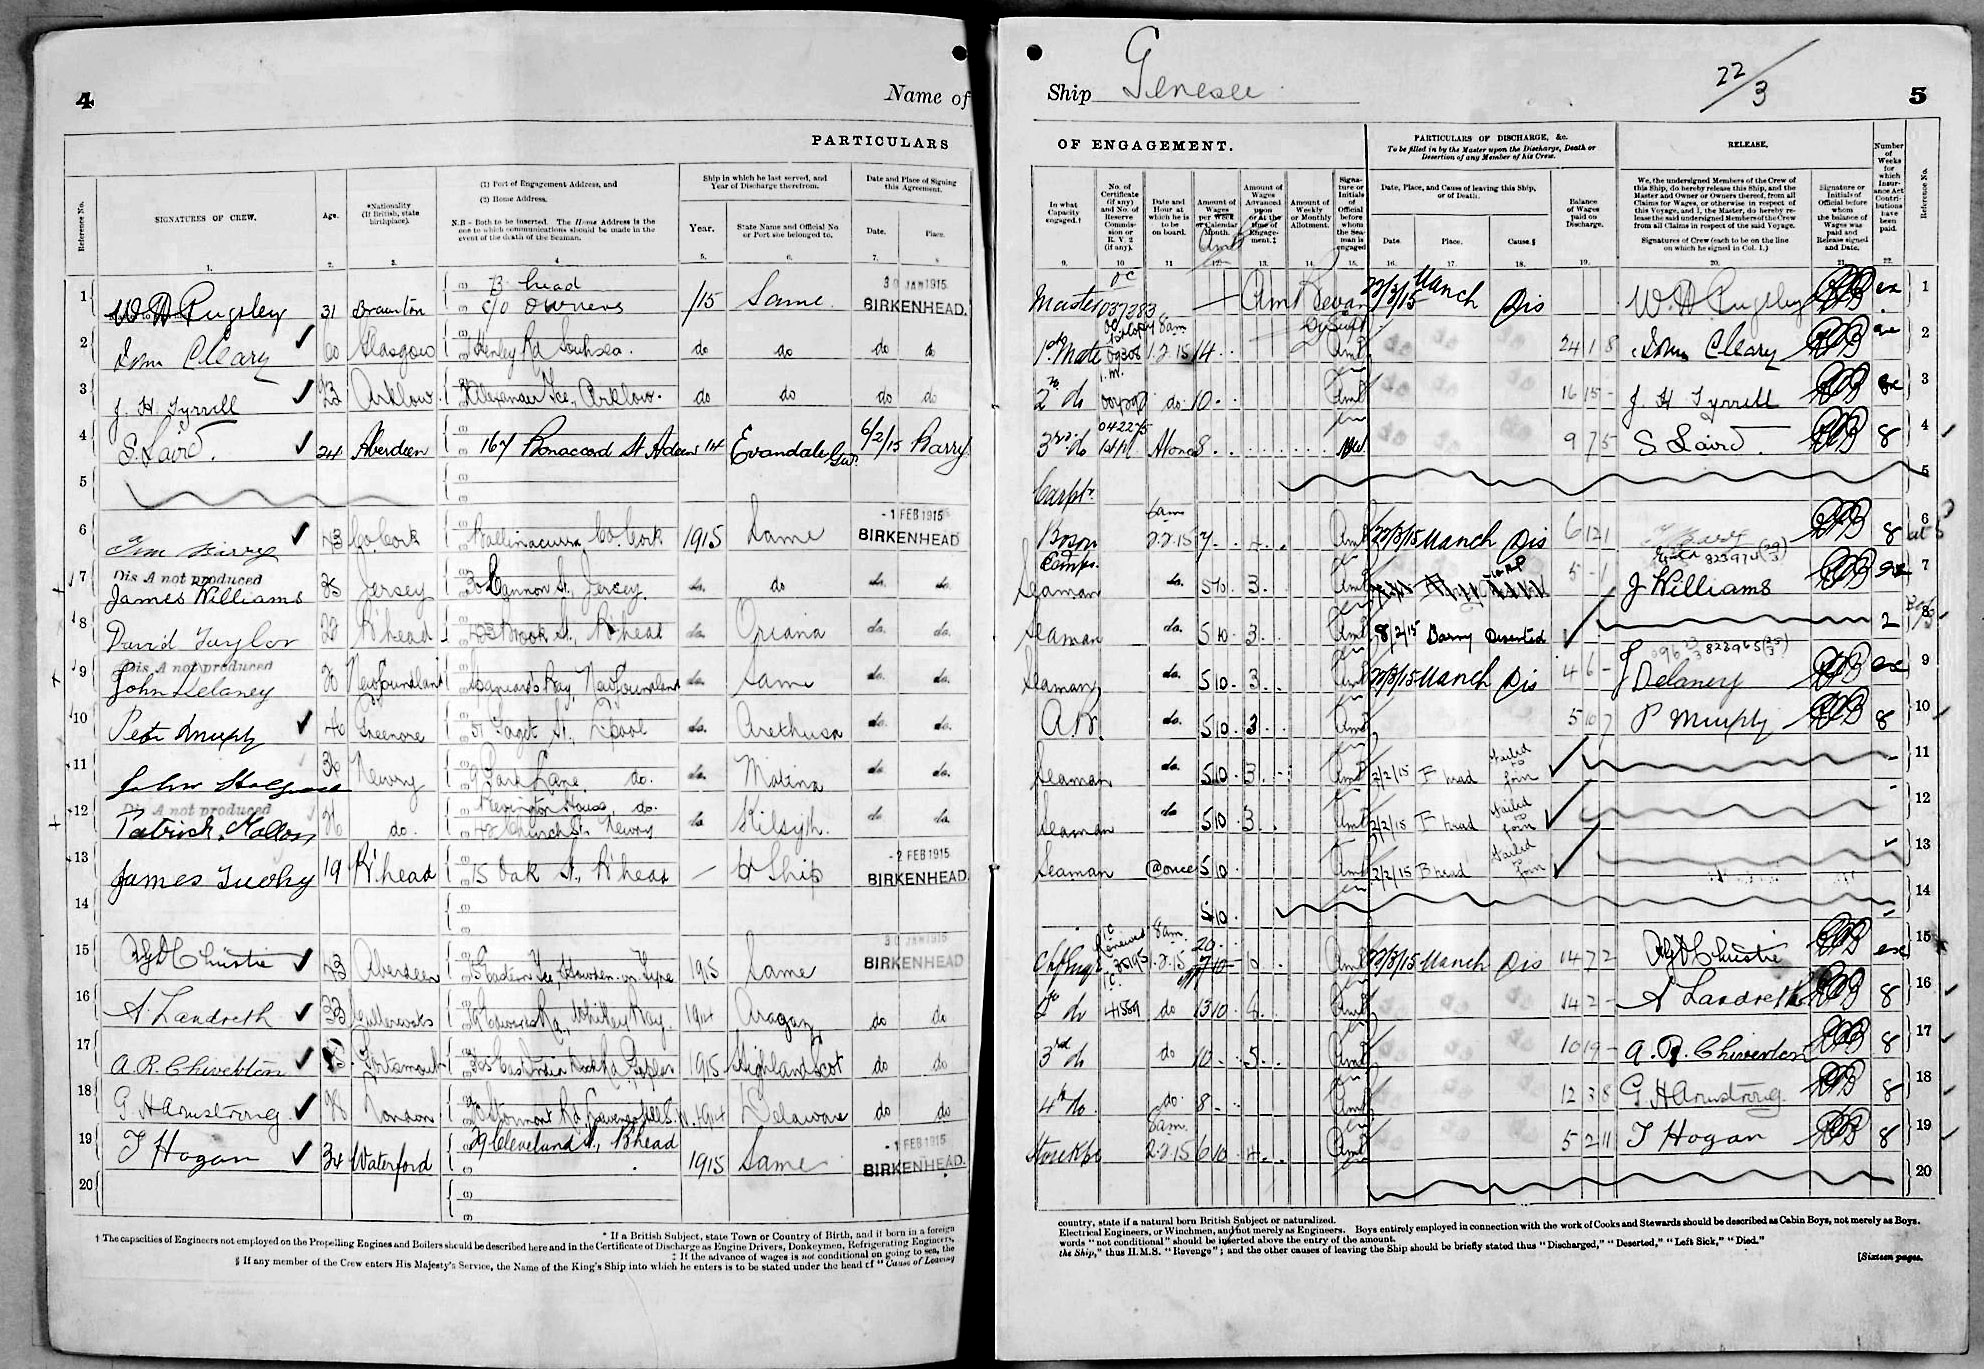 4
Name of
PARTICULARS
Reference No.
SIGNATURES OF CREW.
Age.
*Nationality (If British, state birthplace).
(1) Port of Engagement Address, and
(2) Home Address.
N.B – Both to be inserted. The Home Address is the one to which communications should be made in the event of the death of the Seaman.
Ship in which he last served, and Year of Discharge therefrom.
Year.
State Name and Official No or Port she belonged to.
Date and Place of Signing this Agreement.
Date.
Place.
1. 2. 3. 4 5. 6. 7. 8
1 W H Pugsley 31 Braunton B head c/o Owners /15 Same 30 JAN 1915 BIRKENHEAD.
2 Cleary 60 Glasgow Henley Rd Southsea. do do do do
3 J. H Tyrrell 23 Arklow Alexander Tce, Arklow. do do do do
4 S. Laird. 24 Aberdeen 167 Bonaccord St Aberdeen 14 Evandale 6/2/15 Barry
5
6 Tim 43 Co Cork Ballinacurra, Co Cork 1915 Same - 1 FEB 1915 BIRKENHEAD
Dis A not produced
7 James Williams 35 Jersey Cannon St, Jersey. do. do do. do.
8 David Taylor 22 B'head Brook St, B'head do. Oriana do. do.
Dis A not produced
9 John Delaney Newfoundland Bay, Newfoundland do. Same do. do.
10 Peter Murphy 40 Greenore 51 Paget St, L'pool do. Arethusa do. do.
11 John 36 Newry 9 Park Lane do. do. Matina do. do.
Dis A not produced
12 Patrick Mallon do. House, do. Church St, Newry do Kilsyth. do. do.
13 James Tuohy 19 B'head 15 Oak St, B'head – Ship - 2 FEB 1915 BIRKENHEAD.
14
15 Christie 43 Aberdeen Tce, Howden-on-Tyne 1915 Same 30 JAN 1915 BIRKENHEAD
16 A. Landreth 33 Edwards Rd, Whitley Bay. 1914 Aragaz do do
17 A. R. Chiverton Portsmouth 365 East India Dock Rd Poplar 1915 Highland Scot do do
18 G H Armstrong 28 London Stormont Rd, Lavender Hill S.W. 1914 Delaware do do
19 T Hogan 34 Waterford 29 Cleveland St, B'head 1915 Same - 1 FEB 1915 BIRKENHEAD.
20
* If a British Subject, state Town or Country of Birth, and if born in a foreign
† The capacities of Engineers not employed on the Propelling Engines and Boilers should be described here and in the Certificate of Discharge as Engine Drivers, Donkeymen, Refrigerating Engineers,
‡ If the advance of wages is not conditional on going to sea, the
§ If any member of the Crew enters His Majesty's Service, the Name of the King's Ship into which he enters is to be stated under the head of "Cause of Leaving
Ship Genesee
22/3
5
OF ENGAGEMENT.
PARTICULARS OF DISCHARGE, &c.
To be filled in by the Master upon the Discharge, Death or Desertion of any Member of his Crew.
RELEASE.
Number of Weeks for which Insurance Act Contributions have been paid.
Reference No.
In what Capacity engaged.†
No. of Certificate (if any) and No. of Reserve Commission or R. V. 2 (if any).
Date and Hour at which he is to be on board.
Amount of Wages per Week or Calendar Month.
Amount of Wages Advanced upon or at the time of Engagement.‡
Amount of Weekly or Monthly Allotment.
Signature or Initials of Official before whom the Seaman is engaged
Date, Place, and Cause of leaving this Ship, or of Death.
Date.
Place.
Cause.§
Balance of Wages paid on Discharge.
We, the undersigned Members of the Crew of this Ship, do hereby release this Ship, and the Master and Owner or Owners thereof, from all Claims for Wages, or otherwise in respect of this Voyage, and I, the Master, do hereby release the said undersigned Members of the Crew from all Claims in respect of the said Voyage.
Signatures of Crew (each to be on the line on which he signed in Col. 1.)
Signature or Initials of Official before whom the balance of Wages was paid and Release signed and Date.
9. 10 11 12. 13. 14. 15. 16. 17. 18. 19. 20. 21. 22.
Master 037283 22/3/15 Manch Dis W. H Pugsley 1
1st Mate 8am 1.2.15 14 24 1 8 Cleary 2
2nd do do 10 16 15 - J H Tyrrell 3
3rd do 042275 At once 8 9 7 5 S Laird 8 4
Carptr 5
Bosun 6am 2.2.15 7 22/3/15 Manch Dis 6 12 1 8 6
Seaman do. 5 10 3 5 - 1 823974 J Williams 7
Seaman do. 5 10 3 8/2/15 Barry Deserted 2 8
Seaman do. 5 10 3 22/3/15 Manch Dis 4 6 - 823965 J Delaney 9
A.B. do. 5 10 3 5 10 7 P Murphy 8 10
Seaman do. 5 10 3 2/2/15 B head Failed to join 11
Seaman do 5 10 3 2/2/15 B head Failed to join 12
Seaman @once 5 10 2/2/15 B head Failed to join 13
5 10 14
Ch Engr Renewed 8am 1.2.15 20 22/3/15 Manch Dis 14 7 2 Christie 15
2nd do 41569 do 13 10 14 2 - A Landreth 8 16
3rd do do 10 5 10 19 - A. R. Chiverton 8 17
4th do. do. 8 12 3 8 G H Armstrong. 8 18
Storekpr 6am. 2.2.15 6 10 4 5 2 11 T Hogan 8 19
20
country, state if a natural born British Subject or naturalized.
Electrical Engineers, or Winchmen, and not merely as Engineers. Boys entirely employed in connection with the work of Cooks and Stewards should be described as Cabin Boys, not merely as Boys.
words "not conditional" should be inserted above the entry of the amount.
the Ship," thus H.M.S. "Revenge"; and the other causes of leaving the Ship should be briefly stated thus "Discharged," "Deserted," "Left Sick," "Died."
[Sixteen pages.